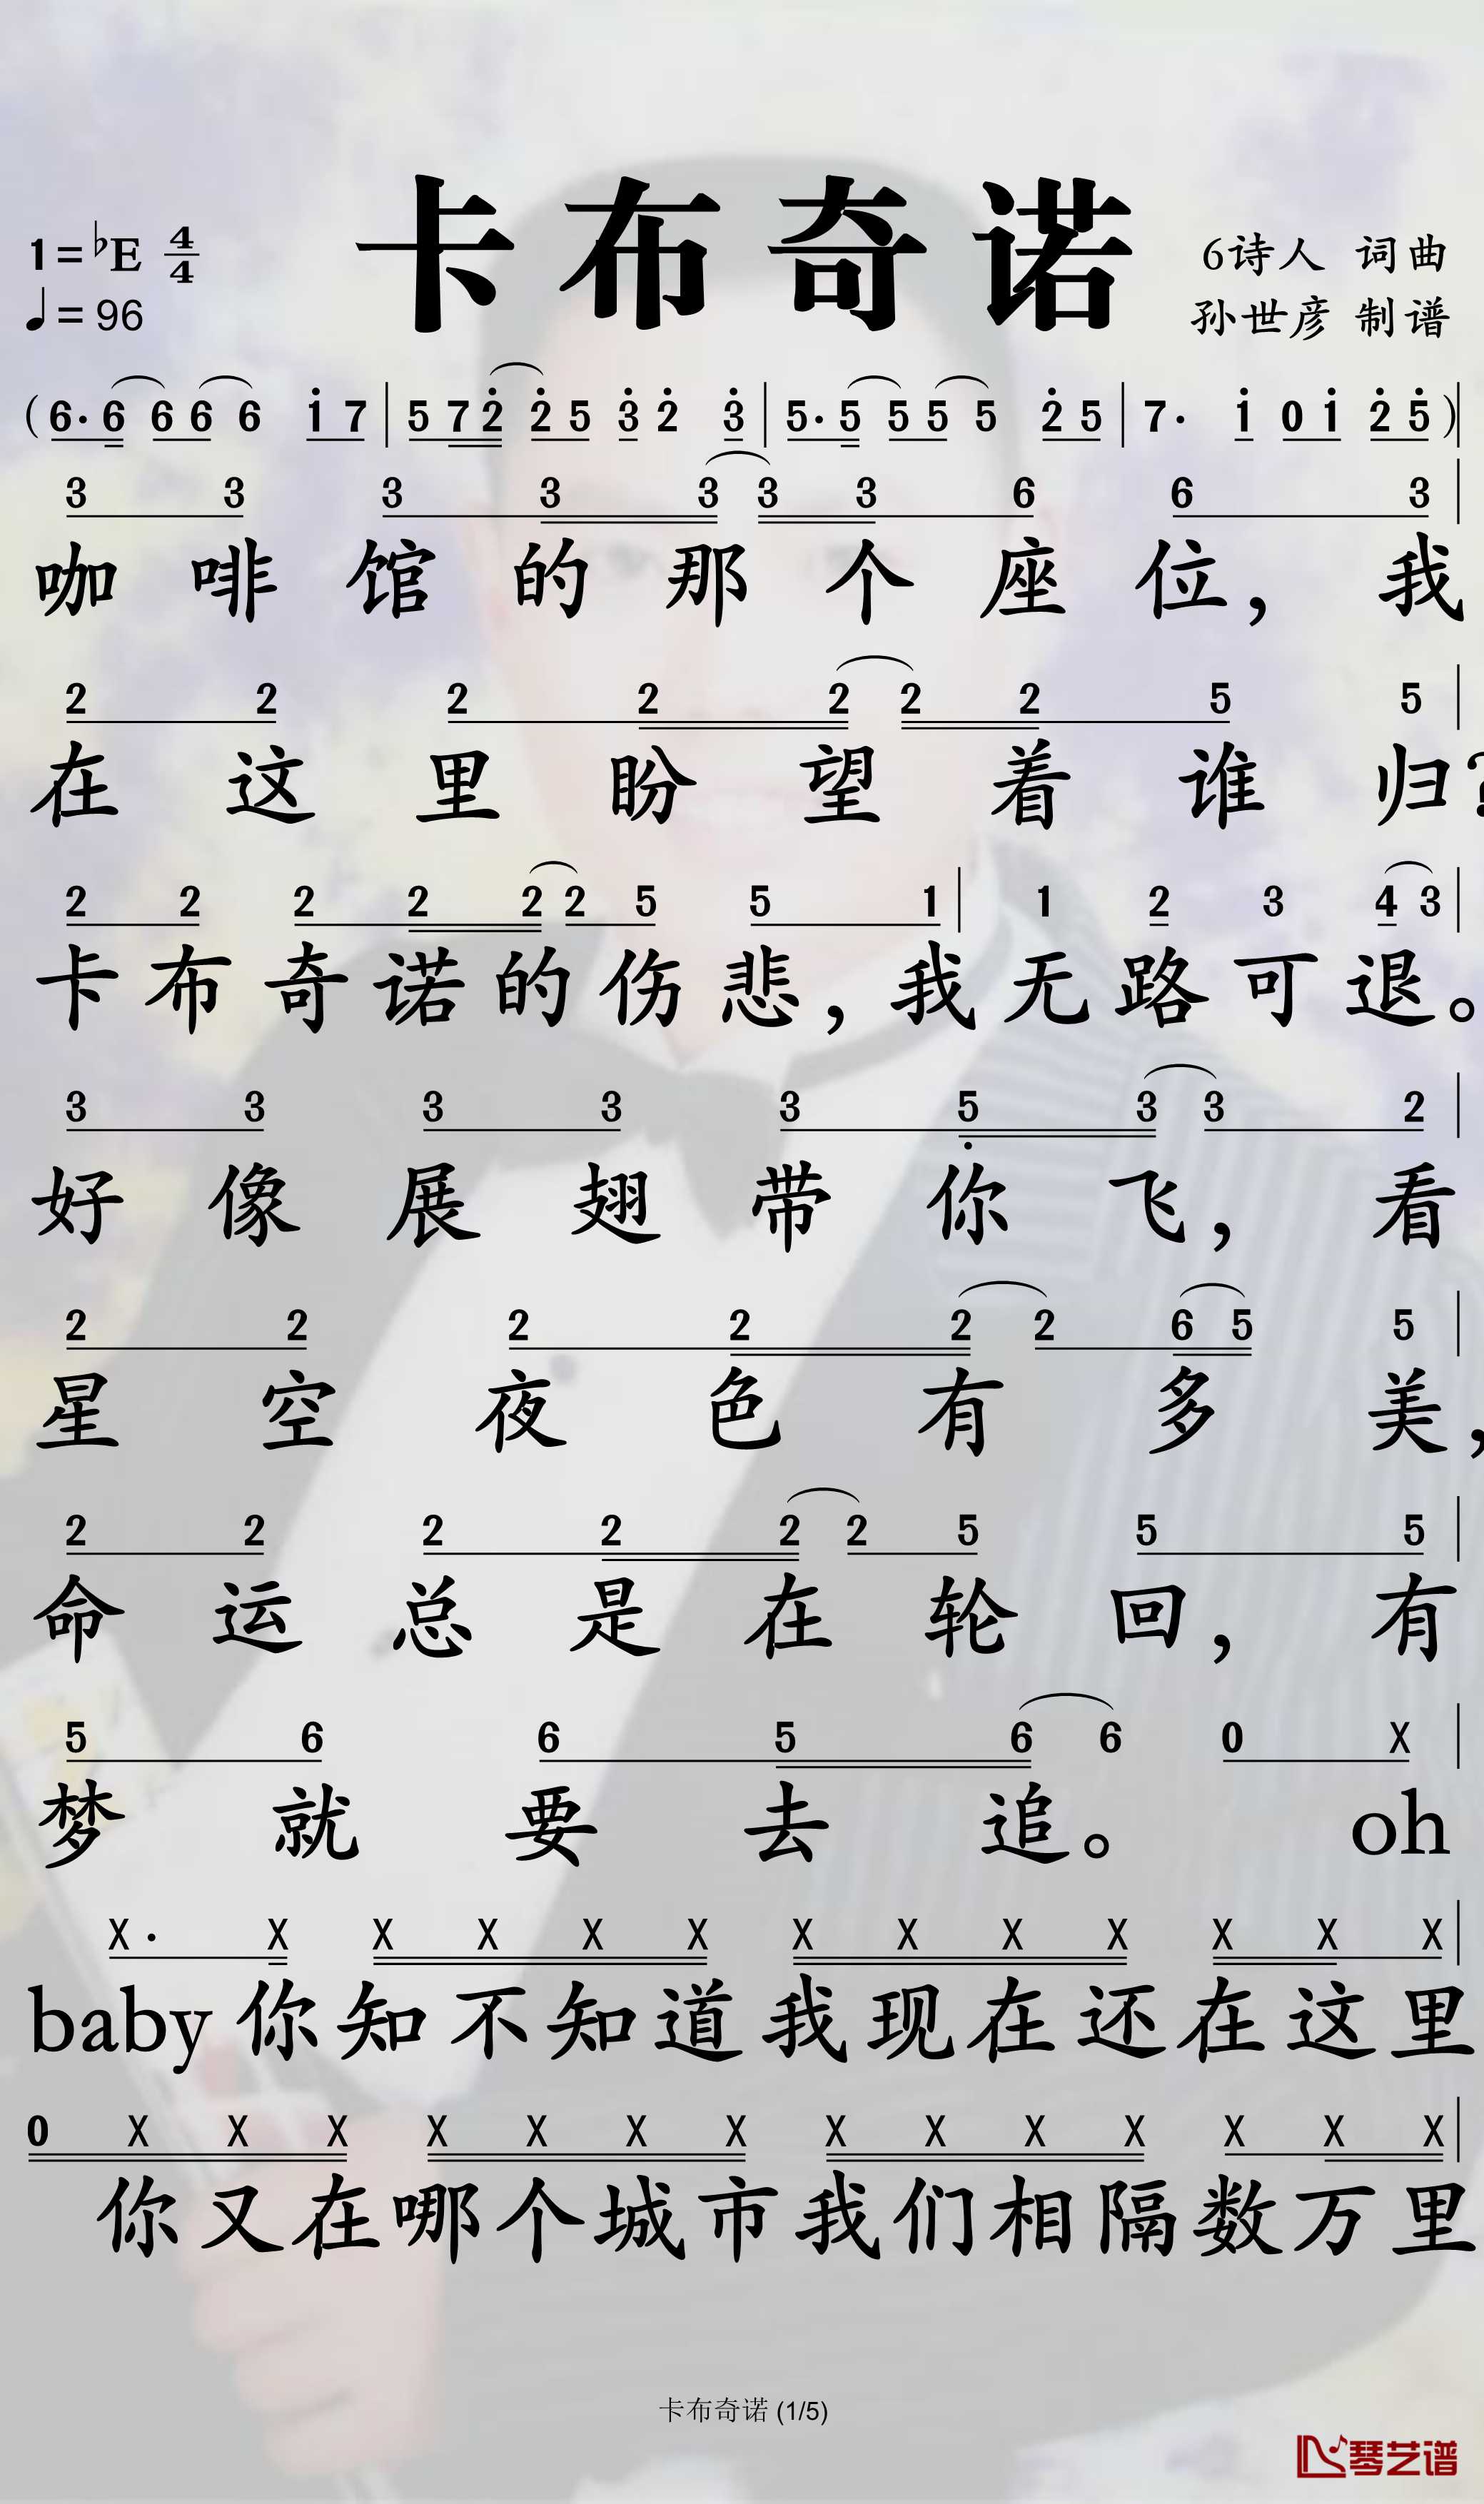 卡布奇诺
1=♭E 4/4
♩=96
6诗人 词曲
孙世彦 制谱
(6· 6 6 6 6 i 7 | 5 7 2̇ 2̇ 5 3̇ 2̇ 3̇ | 5· 5 5 5 5 2̇ 5 | 7· i 0 i 2̇ 5̇ )|
3 3 3 3 3 3 3 6 6 3 |
咖啡馆的那个座位，我
2 2 2 2 2 2 2 5 5 |
在这里盼望着谁归？
2 2 2 2 2 2 5 5 1 | 1 2 3 4 3 |
卡布奇诺的伤悲，我无路可退。
3 3 3 3 3 5̣ 3 3 2 |
好像展翅带你飞，看
2 2 2 2 2 2 6 5 5 |
星空夜色有多美，
2 2 2 2 2 2 5 5 5 |
命运总是在轮回，有
5 6 6 5 6 6 0 X |
梦就要去追。 oh
X· X X X X X X X X X X X X |
baby 你知不知道我现在还在这里
0 X X X X X X X X X X X X X X |
你又在哪个城市我们相隔数万里
卡布奇诺 (1/5)
琴艺谱